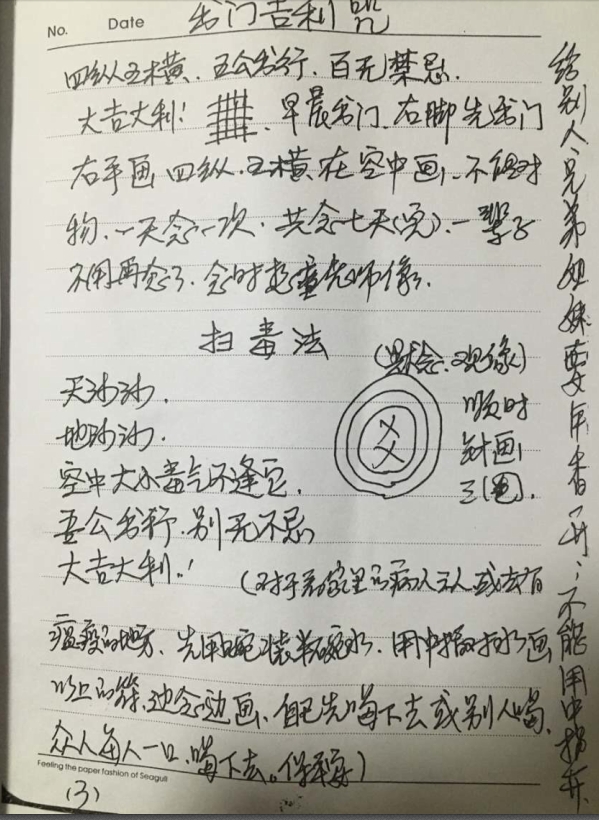 No. Date 出门吉利咒
四纵五横、五公出行、百无禁忌.
大吉大利! 、早晨出门、右脚先出门
右手画四纵、五横、在空中画、不能对
物、一天念一次、共念七天(完)、一辈子
不用再念了、念时想童先师像、
扫毒法
(默念、观像)
天沙沙.
顺时
地沙沙.
针画
空中大小毒气不逢它.
三圈.
吾公出行、别无不忌
大吉大利.!
(对于家里的病人 或去有
瘟疫的地方、先用碗装半碗水、用中指对水画
以上的符、边念边画、自己先喝下去或别人喝、
众人每人一口、喝下去。保平安)
Feeling the paper fashion of Seagull
(3)
给别人兄弟姐妹要用香开;不能用中指开.